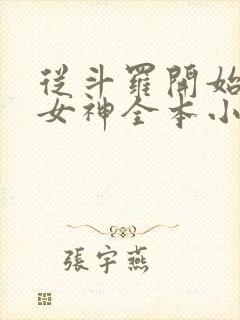 從斗羅開始
女神全本小
張宇燕